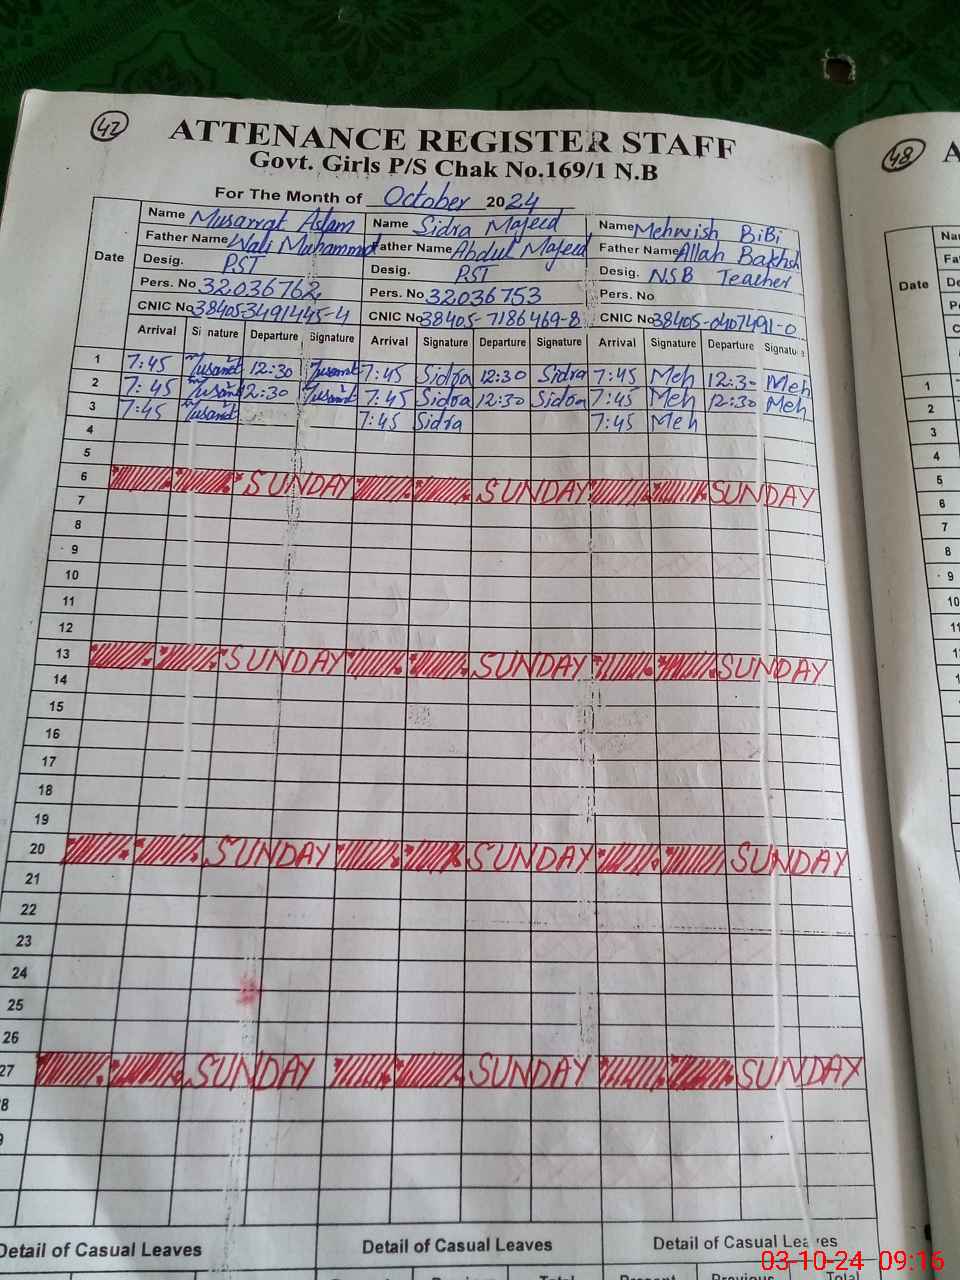 42 ATTENANCE REGISTER STAFF
Govt. Girls P/S Chak No.169/1 N.B
For The Month of October 2024
Date
Name Musarrat Aslam Name Sidra Majeed Name Mehwish BiBi
Father Name Wali Muhammad Father Name Abdul Majeed Father Name Allah Bakhsh
Desig. PST Desig. PST Desig. NSB Teacher
Pers. No 32036762 Pers. No 32036753 Pers. No
CNIC No 38405-3491445-4 CNIC No 38405-7186469-8 CNIC No 38405-0407491-0
Arrival Signature Departure Signature Arrival Signature Departure Signature Arrival Signature Departure Signature
1 7:45 12:30 7:45 Sidra 12:30 Sidra 7:45 Meh 12:30 Meh
2 7:45 12:30 7:45 Sidra 12:30 Sidra 7:45 Meh 12:30 Meh
3 7:45 7:45 Sidra 7:45 Meh
4
5
6 SUNDAY SUNDAY SUNDAY
7
8
9
10
11
12
13 SUNDAY SUNDAY SUNDAY
14
15
16
17
18
19
20 SUNDAY SUNDAY SUNDAY
21
22
23
24
25
26
27 SUNDAY SUNDAY SUNDAY
8
9
Detail of Casual Leaves Detail of Casual Leaves Detail of Casual Leaves
Total
48 A
Date
1
2
3
4
5
6
7
8
9
10
03-10-24 09:16